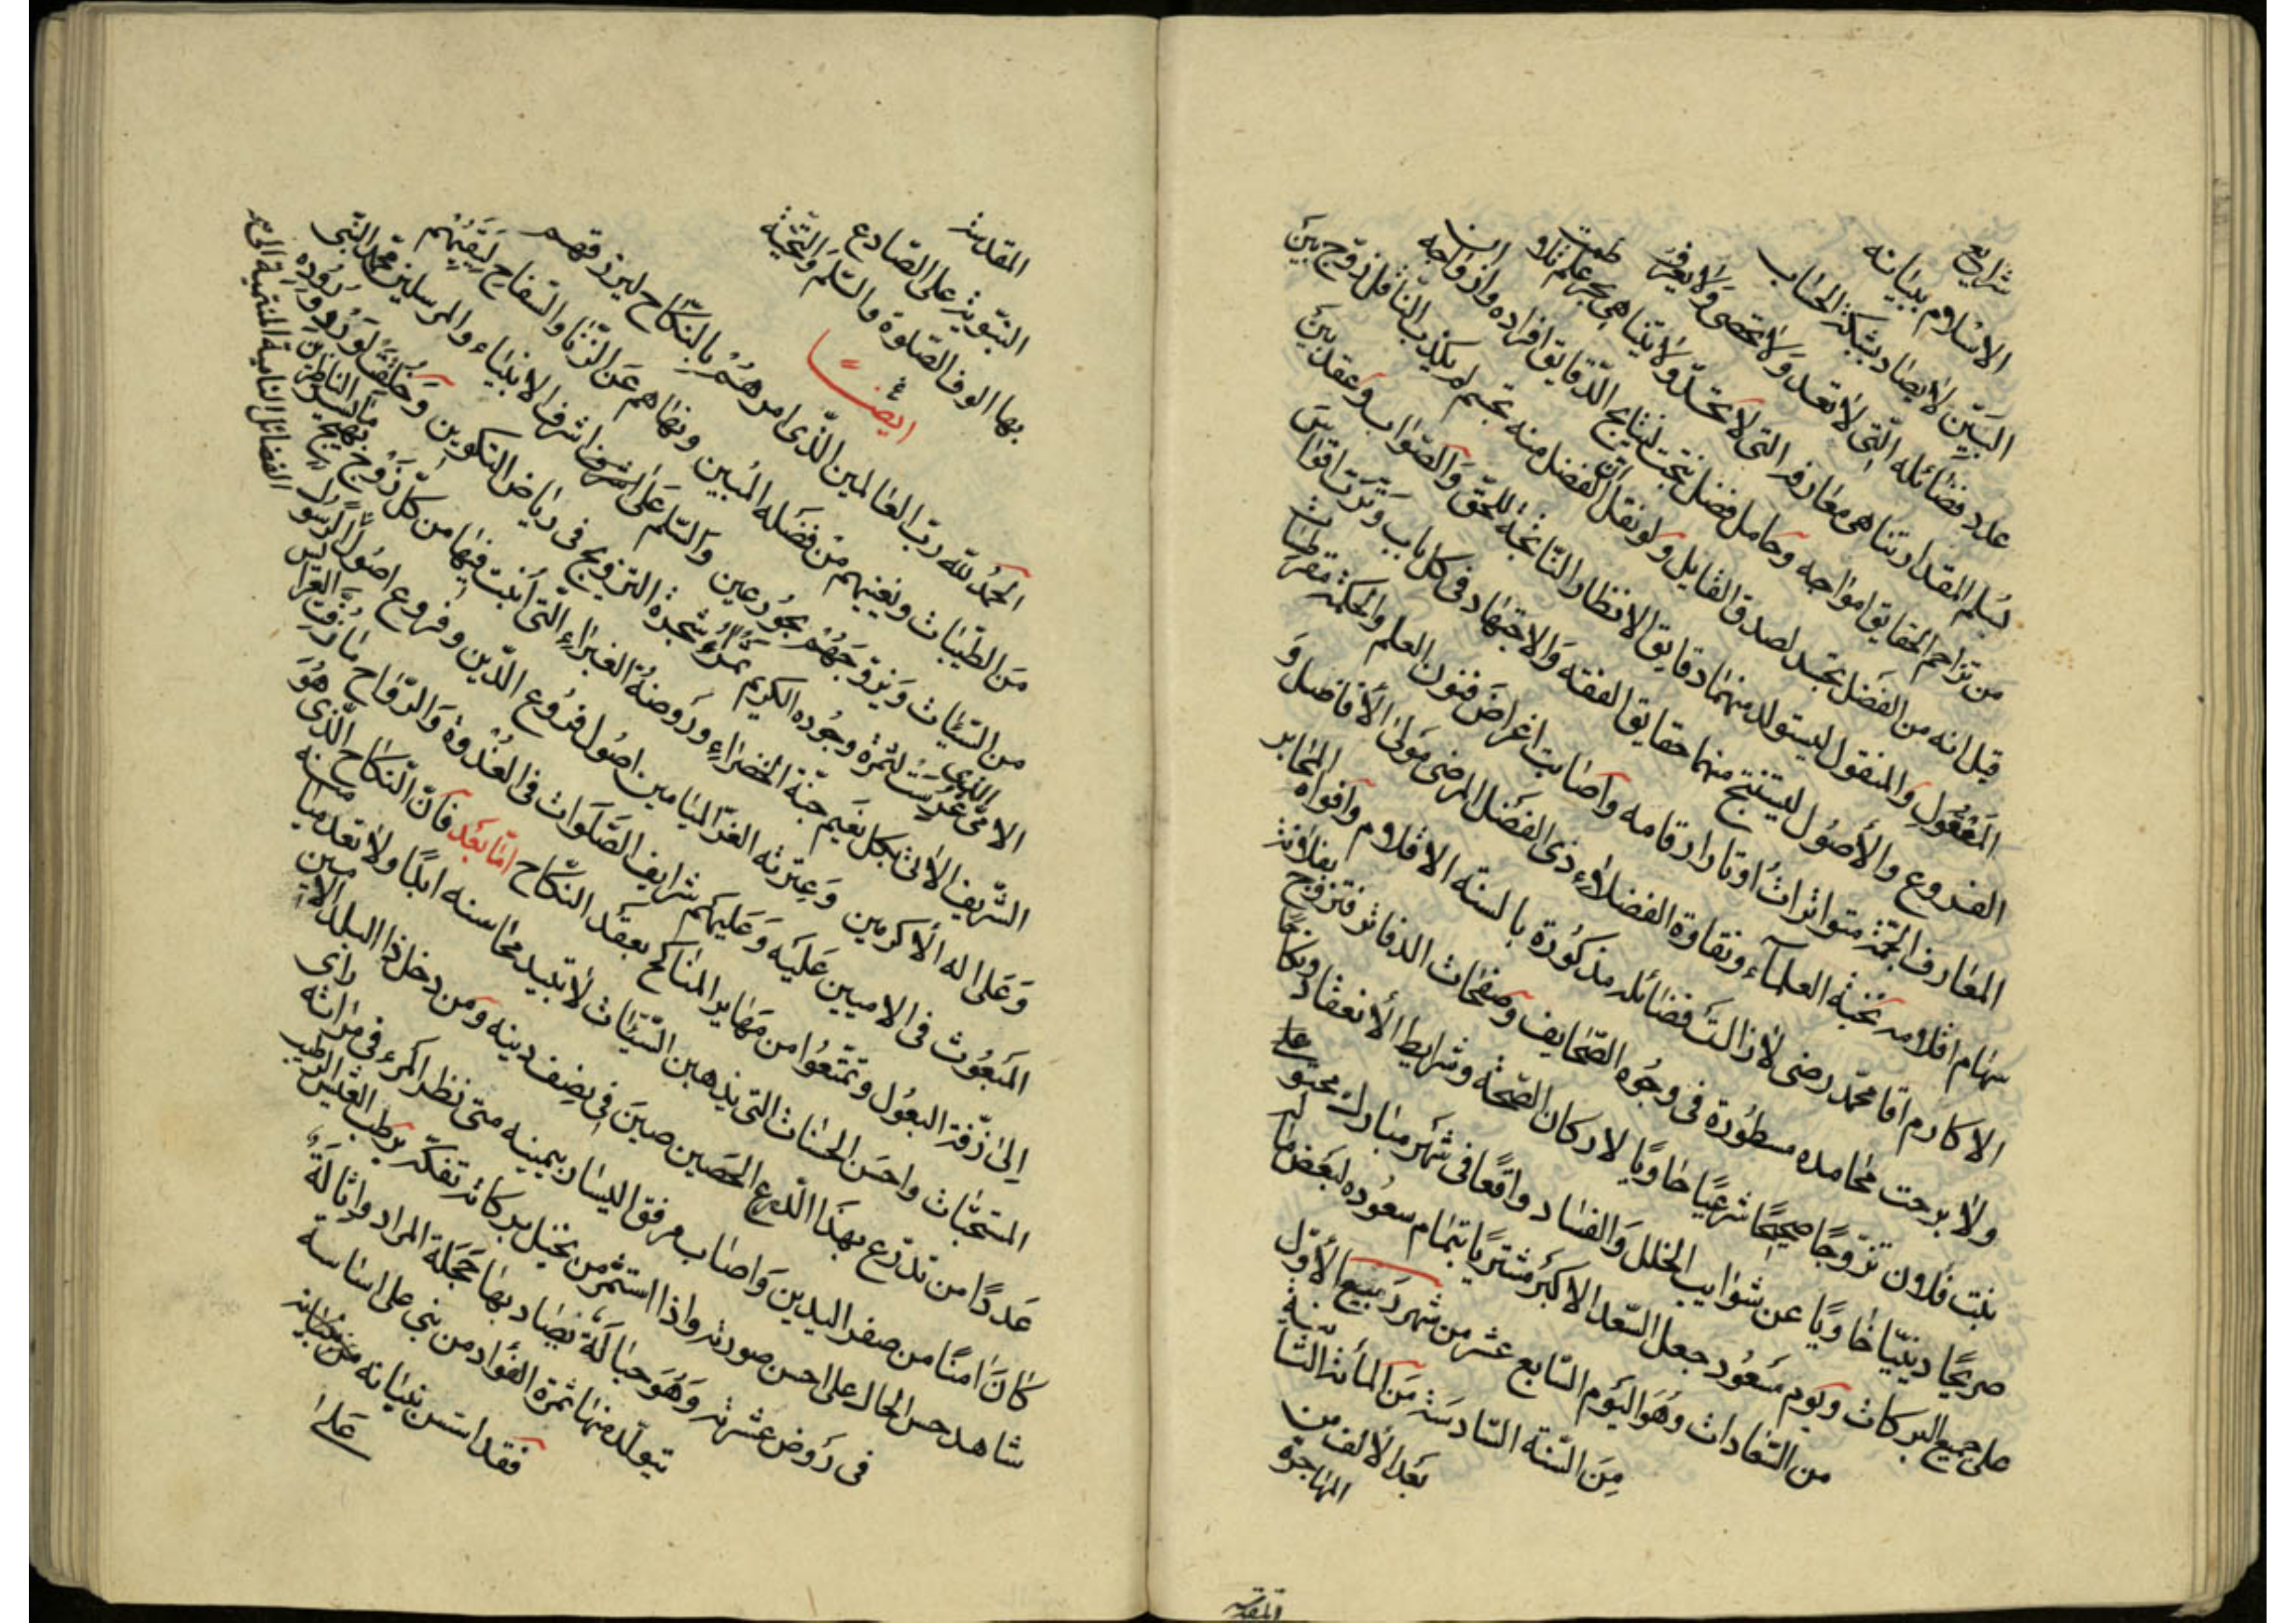 شرايع
الاسلام ببيانه
البيّن لايصاد بشبكة الحساب
عدد فضائله الّتى لاتعد ولا تحصى ولا يعرف
بسلم المقدار تناهى معارفه التى لا تحدّ ولا يتناهى بحر علم تلاطمت
من تزاحم الحقايق امواجه وحامل فضل نتجت لنتايج الدّقايق افراده وازواجه ان
قيل انه من الفضل تجسد لصدق القايل ولو نقل ان الفضل منه تجسم لم يكذب الناقل زوّج بين
المعقول والمنقول ليستولد منهما دقايق الانظار النّاتجة للحقّ والصّواب وعقد بين
الفروع والأصول ليستنتج منهما حقايق الفقه والاجتهاد فى كل باب وترت اقواس
المعارف الجمّة متواترات اوتار ارقامه واصابت اغراض فنون العلم والحكمة مقرطسات
سهام اقلامه نخبة العلمآء ونقاوة الفضلاء ذى الفضل المرضى مولى الأفاضل و
الاكارم اقا محمّد رضى لازالت فضائله مذكورة بالسنة الاقلام وافواه المحابر
ولا برحت محامده مسطورة فى وجوه الصّحايف وصفحات الدفاتر فتزوج بفلانة
بنت فلان تزوّجًا صحيحًا شرعيًا حاويًا لاركان الصّحة وشرايط الأنعقاد ونكاحًا
صريحًا دينيّا خاويًا عن شوايب الخلل والفساد واقعًا فى شهر مبارك محتو على
على جميع البركات ويوم مسعود جعل السّعد الاكبر مشتريًا بتمام سعوده لبعض ما له
من السّعادات وهو اليوم السّابع عشر من شهر ربيع الأوّل
من السّنة السّادسة من المأئة الثّانية
بعد الألف من
المهاجرة
المقدسة
المقدسة
النبّوية على الصّادع
بها الوف الصّلوة والسّلم والتّحيّة
ايضًا
الحمد للّه ربّ العالمين الّذى امرهم بالنّكاح ليرزقهم
من الطّيبات ويغنيهم من فضله المبين ونهاهم عن الزّنا والسّفاح ليقيهم
من السّيّات ويزوّجهم بحور عين والسّلم على اشرف الانبياء والمرسلين محمّد النّبى
الامّى الذى غرست لثمرة وجوده الكريم شجرة التزويج فى رياض التكوين وخلقت لورود وروده
الشّريف الأنى بكل نعيم جنّة الخضراء وروضة الغبراء الّتى أنبت فيها من كلّ زوج بهيج يسر الناظرين
وعلى اله الاكرمين وعترته الغرّ الميامين اصول فروع الدّين وفروع اصول الرسول
المبعوث فى الاميين عليه وعليهم شرايف الصّلوات فى الغدوة والرّواح ما زفّت العرايس
إلى زفّة البعول وتمتّعوا من مهاير المناكح بعقد النكّاح امّا بعد فانّ النّكاح الّذى هو
المستحبّات واحسن الحسنات التى يذهبن السّيّئات لا تبيد محاسنه ابدًا ولا تعد ميامنه
عددًا من تدرّع بهذا الدّرع الحصين صين فى نصف دينه ومن دخل ذا البلد الامين
كان امنًا من صفر اليدين واصاب مرفق اليسار بيمينه متى نظر المرء فى مراته راى
شاهد حسن الحال على احسن صورته واذا استثمر من نخيل بركاته تفكّه برطب العيش الرطيب
فى روض عشرته وهو حبالة يصاد بها حجلة المراد واثالة
يتولّد منها ثمرة الفؤاد من بنى على اساسه
فقد اسّس بنيانه
على
الفضائل النامية المنتمية الى